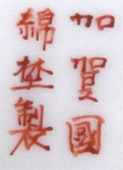 加賀國
綿埜製